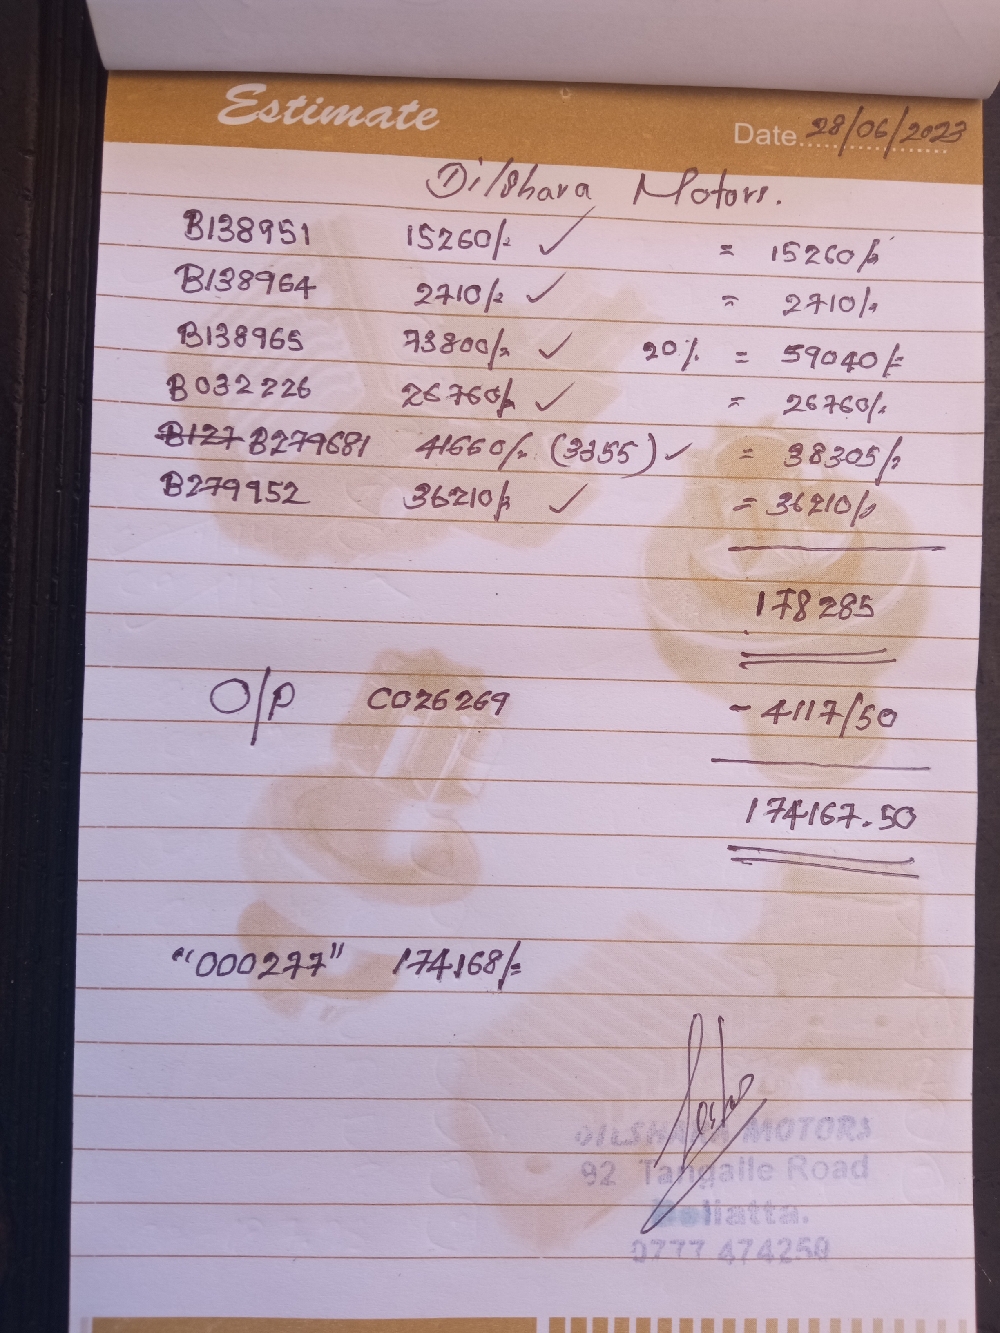 Estimate
Date 28/06/2023
Dilshara Motors.
B138951 15260/= ✓ = 15260/=
B138964 2710/= ✓ = 2710/=
B138965 73800/= ✓ 20% = 59040/=
B032226 26760/= ✓ = 26760/=
B127 B279681 41660/= (3355) ✓ = 38305/=
B279952 36210/= ✓ = 36210/=
178285
O/P C026269 - 4117/50
174167.50
"000277" 174168/=
DILSHARA MOTORS
92 Tangalle Road
Beliatta.
0777 474250